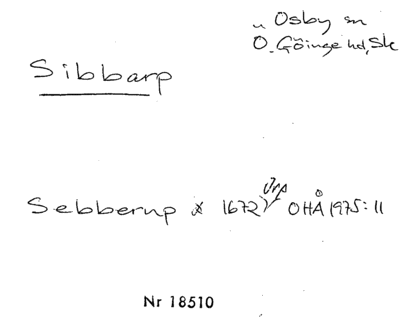 „ Osby sn
Ö. Göinge hd, Sk
Sibbarp
Sebberup 1672 Jrp OHÅ 1975:11
Nr 18510